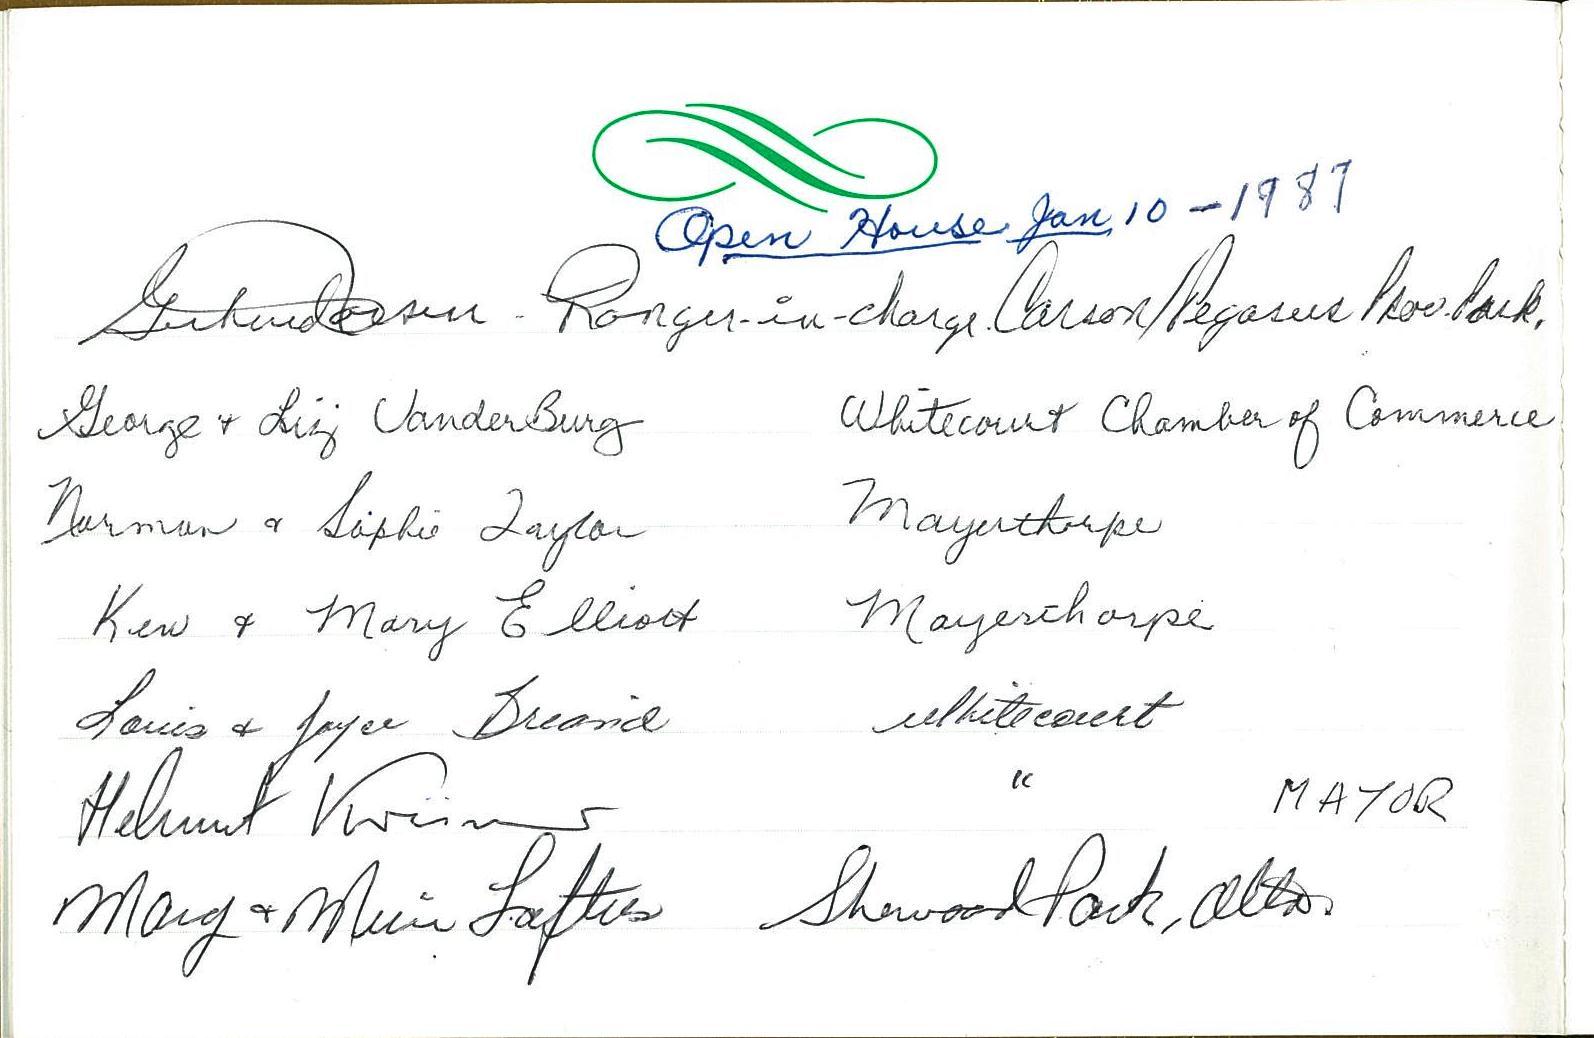 Open House Jan 10 - 1987
Ranger-in-charge Carson/Pegasus Prov. Park.
George + Liz VanderBurg Whitecourt Chamber of Commerce
Norman & Sophie Taylor Mayerthorpe
Ken & Mary Elliott Mayerthorpe
Louis & Joyce Whitecourt
Helmut " MAYOR
Marg & Loftus Sherwood Park, Alta.